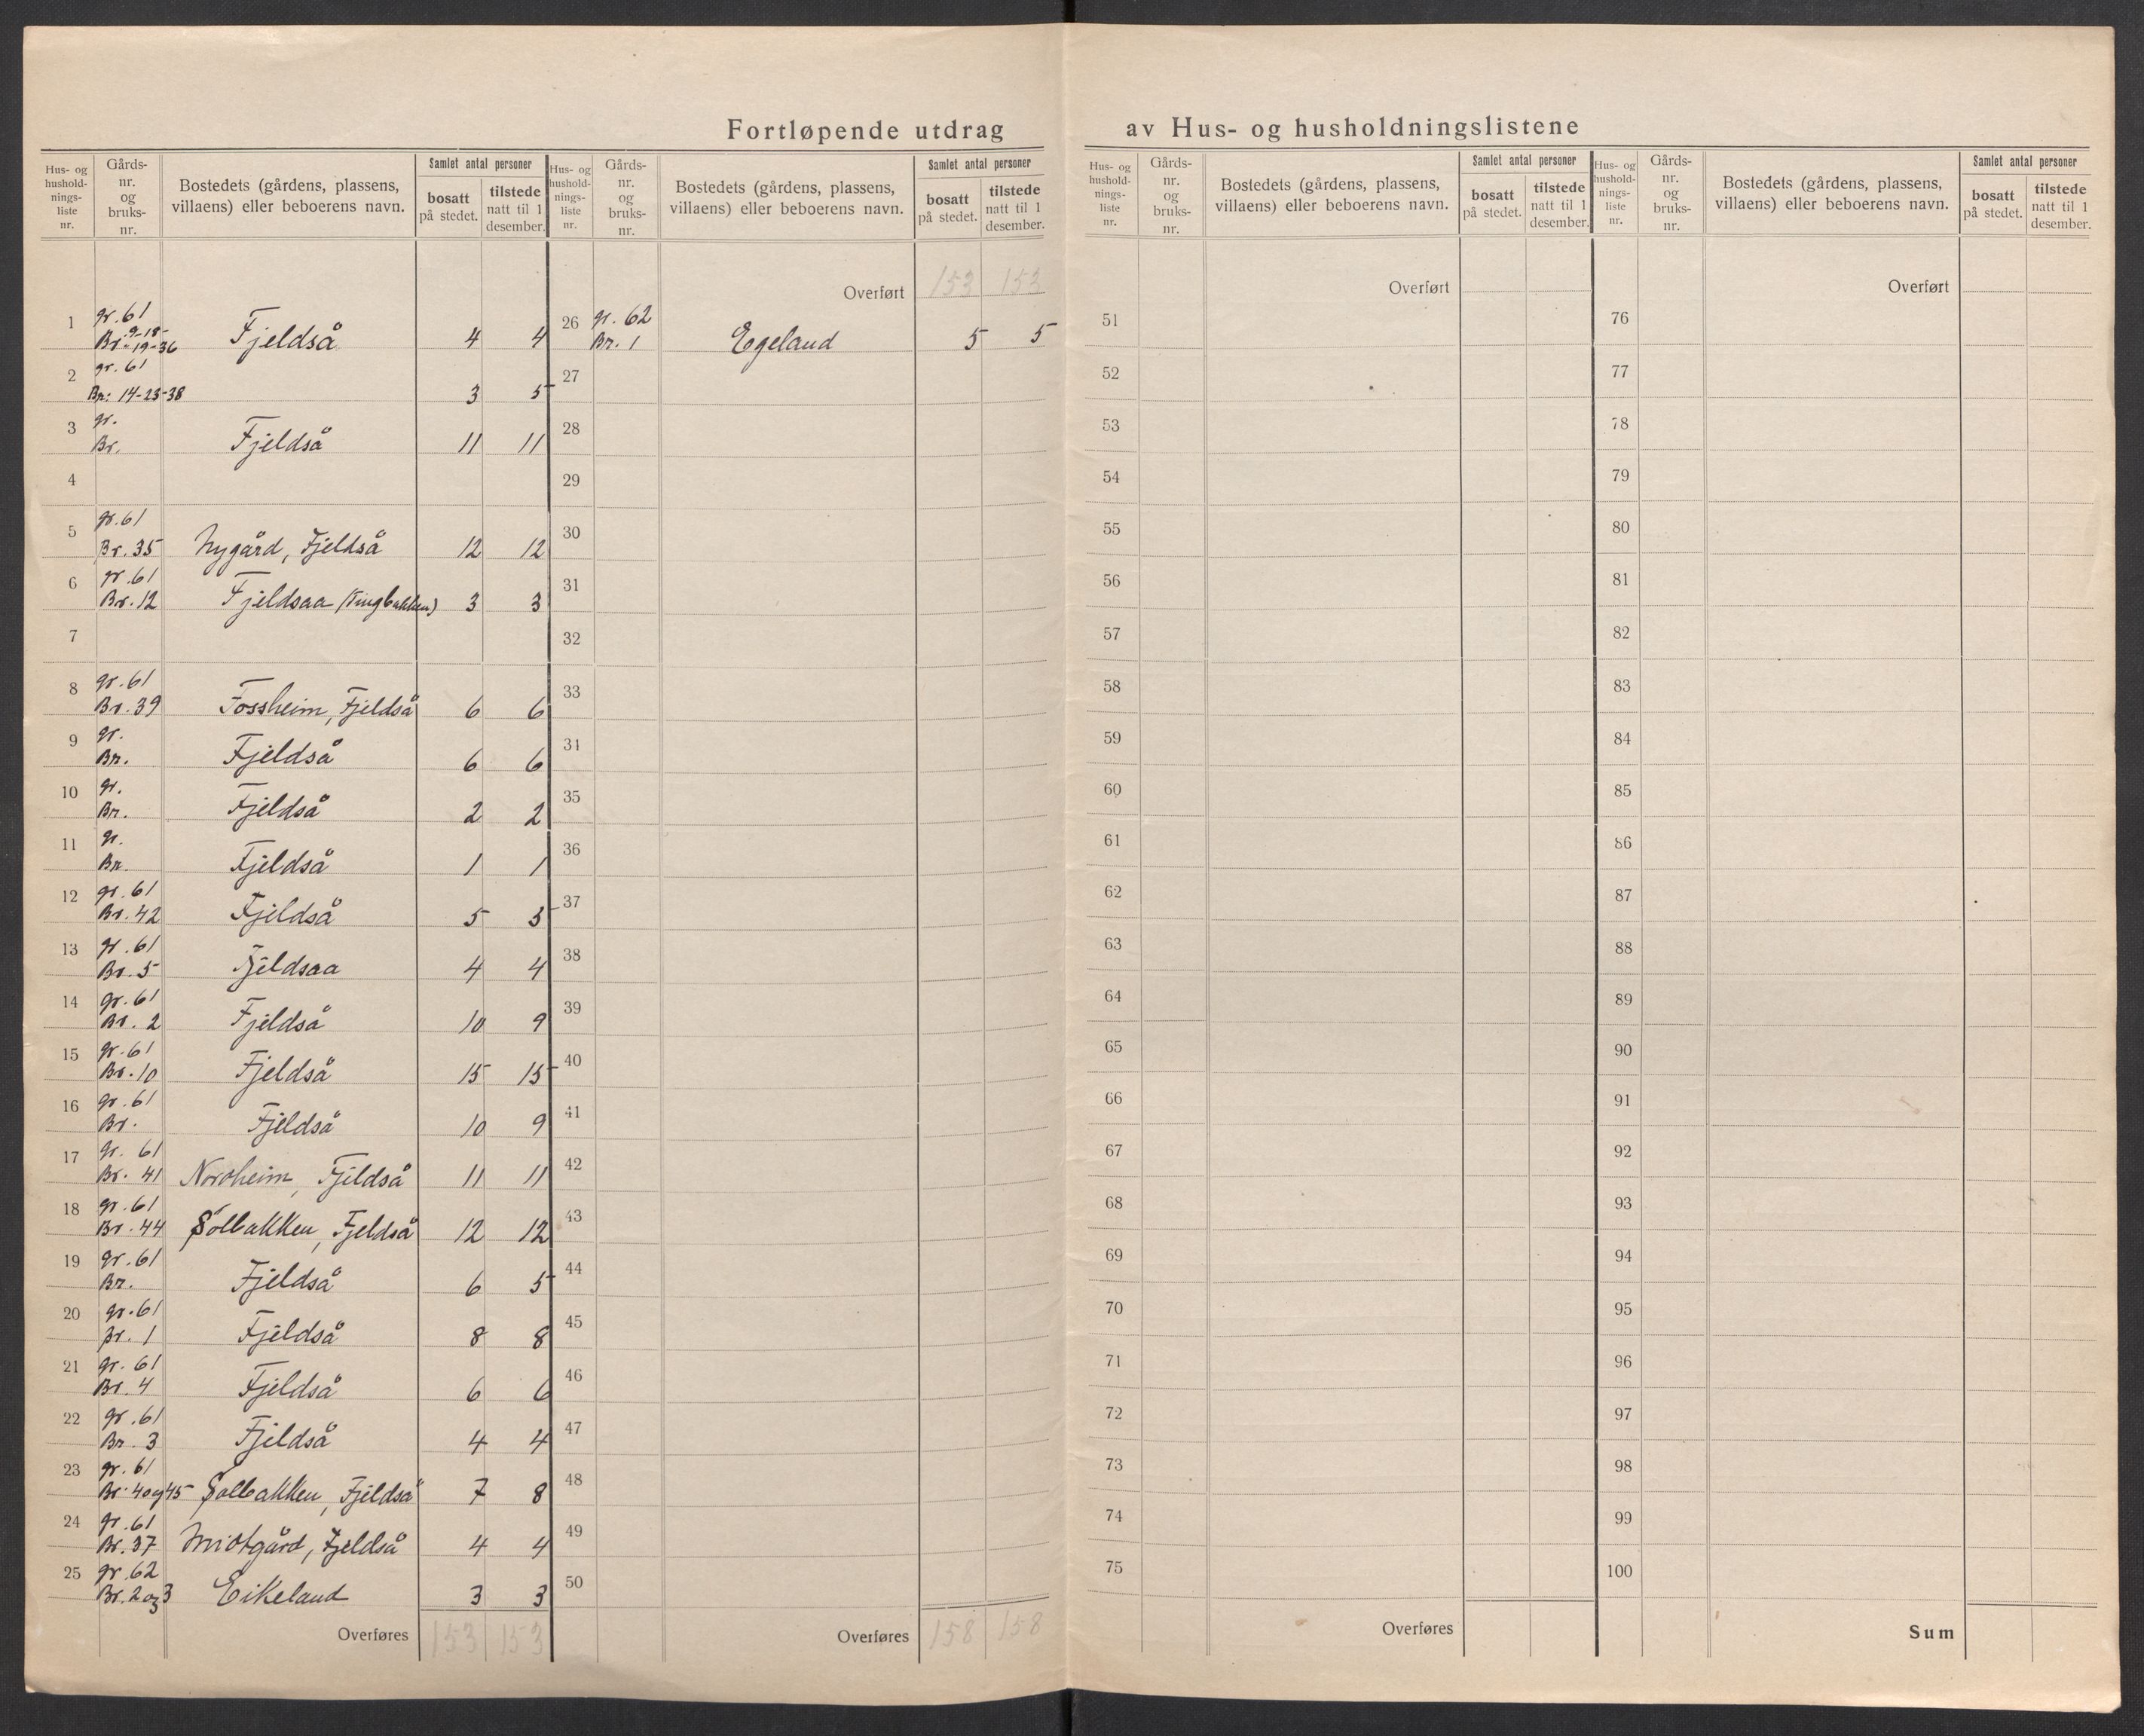 Fortløpende utdrag av Hus- og husholdningslistene
Hus- og hushold-nings-liste nr. Gårds-nr. og bruks-nr. Bostedets (gårdens, plassens, villaens) eller beboerens navn. Samlet antal personer bosatt på stedet. tilstede natt til 1 desember.
Hus- og hushold-nings-liste nr. Gårds-nr. og bruks-nr. Bostedets (gårdens, plassens, villaens) eller beboerens navn. Samlet antal personer bosatt på stedet. tilstede natt til 1 desember.
Hus- og hushold-nings-liste nr. Gårds-nr. og bruks-nr. Bostedets (gårdens, plassens, villaens) eller beboerens navn. Samlet antal personer bosatt på stedet. tilstede natt til 1 desember.
Hus- og hushold-nings-liste nr. Gårds-nr. og bruks-nr. Bostedets (gårdens, plassens, villaens) eller beboerens navn. Samlet antal personer bosatt på stedet. tilstede natt til 1 desember.
1 gr. 61 Br. 9-18-19-36 Fjeldså 4 4
2 gr. 61 Br: 14-23-38 3 5
3 gr. Br. Fjeldså 11 11
4
5 gr. 61 Br. 35 Nygård, Fjeldså 12 12
6 gr. 61 Br. 12 Fjeldsaa (Tingbakken) 3 3
7
8 gr. 61 Br. 39 Fossheim, Fjeldså 6 6
9 gr. Br. Fjeldså 6 6
10 gr. Br. Fjeldså 2 2
11 gr. Br. Fjeldså 1 1
12 gr. 61 Br. 42 Fjeldså 5 5
13 gr. 61 Br. 5 Fjeldsaa 4 4
14 gr. 61 Br. 2 Fjeldså 10 9
15 gr. 61 Br. 10 Fjeldså 15 15
16 gr. 61 Br. Fjeldså 10 9
17 gr. 61 Br. 41 Nordheim, Fjeldså 11 11
18 gr. 61 Br. 44 Solbakken, Fjeldså 12 12
19 gr. 61 Br. Fjeldså 6 5
20 gr. 61 Br. 1 Fjeldså 8 8
21 gr. 61 Br. 4 Fjeldså 6 6
22 gr. 61 Br. 3 Fjeldså 4 4
23 gr. 61 Br. 4 og 45 Solbakken, Fjeldså 7 8
24 gr. 61 Br. 37 Midtgård, Fjeldså 4 4
25 gr. 62 Br. 2 og 3 Eikeland 3 3
Overføres 153 153
Overført 153 153
26 gr. 62 Br. 1 Egeland 5 5
27
28
29
30
31
32
33
34
35
36
37
38
39
40
41
42
43
44
45
46
47
48
49
50
Overføres 158 158
Overført
51
52
53
54
55
56
57
58
59
60
61
62
63
64
65
66
67
68
69
70
71
72
73
74
75
Overføres
Overført
76
77
78
79
80
81
82
83
84
85
86
87
88
89
90
91
92
93
94
95
96
97
98
99
100
Sum